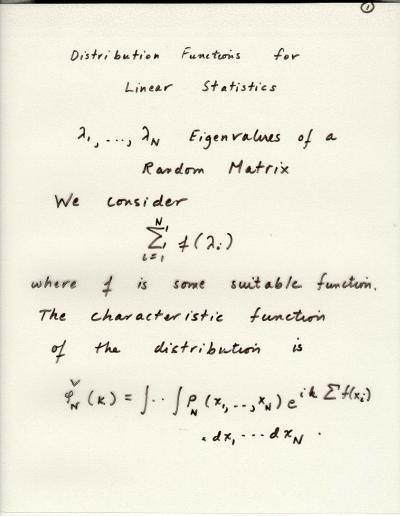 ①
Distribution Functions for
Linear Statistics
λ₁, ..., λ_N Eigenvalues of a
Random Matrix
We consider
N
Σ f(λᵢ)
i=1
where f is some suitable function.
The characteristic function
of the distribution is
φ̌_N (k) = ∫··∫ P_N (x₁, ..., x_N) e^{ik Σ f(xᵢ)}
· dx₁ ··· dx_N .